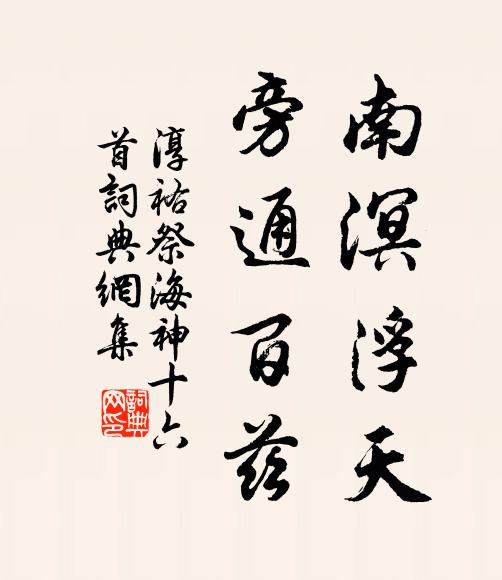 南溟浮天
旁通百蠻
淳祐祭海神十六
首詞典網集
詞典
网印